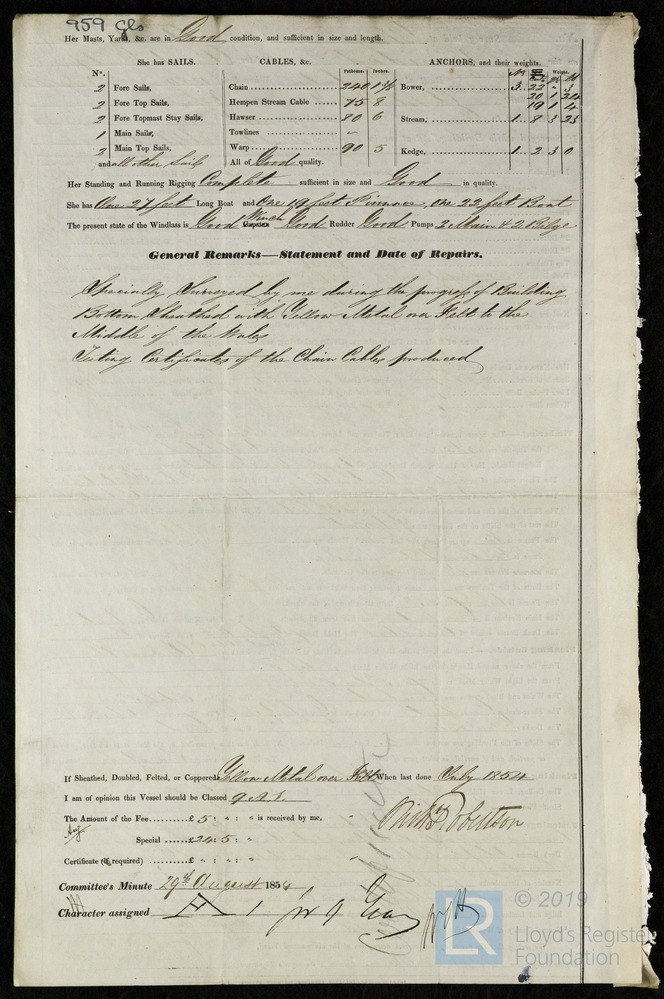 959 Gls
Her Masts, Yards, &c. are in Good condition, and sufficient in size and length.
She has SAILS. CABLES, &c. ANCHORS, and their weights.
No. Fathoms. Inches. No Weight.
2 Fore Sails, Chain 240 1 3/8 Bower, 3 22 " 3
2 Fore Top Sails, Hempen Stream Cable 75 8 20 1 24
19 1 4
2 Fore Topmast Stay Sails, Hawser 80 6 Stream, 1 8 3 23
1 Main Sails, Towlines
2 Main Top Sails, Warp 90 5 Kedge, 1 2 3 0
and all other Sails All of Good quality.
Her Standing and Running Rigging Complete sufficient in size and Good in quality.
She has One 27 feet Long Boat and One 19 feet Pinnace, One 22 feet Boat
The present state of the Windlass is Good Winch Capstan Good Rudder Good Pumps 2 Main & 2 Bilge
General Remarks—Statement and Date of Repairs.
Specially Surveyed by me during the progress of Building
Bottom Sheathed with Yellow Metal over Felt to the
Middle of the Wales
Testing Certificates of the Chain Cables produced
If Sheathed, Doubled, Felted, or Coppered Yellow Metal over Felt When last done July 1854
I am of opinion this Vessel should be Classed 9 A 1.
The Amount of the Fee £ 5 : " : " is received by me,
Special £ 24 : 5 : "
Certificate (if required) £ " : " : "
Committee's Minute 29th August 1854
Character assigned A 1
© 2019
LR
Lloyd's Register
Foundation